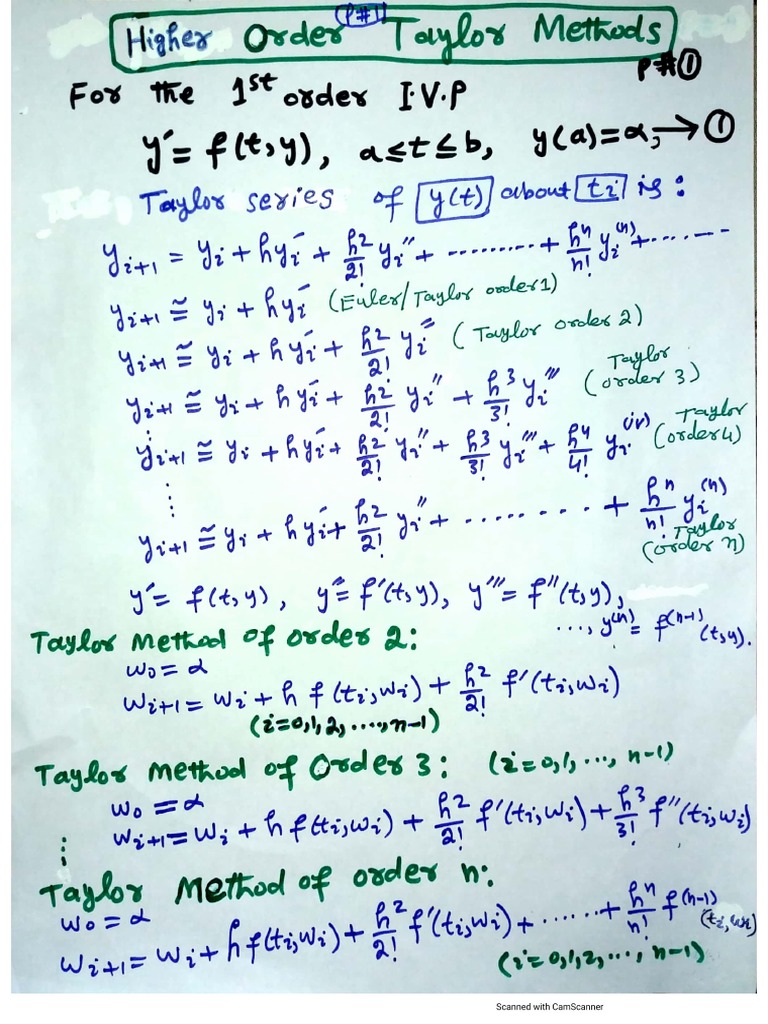 P#1
Higher Order Taylor Methods
P#①
For the 1st order I.V.P
y′ = f(t,y), a≤t≤b, y(a)=α, → ①
Taylor series of y(t) about ti is:
yi+1 = yi + hyi′ + h²/2! yi″ + ......... + hⁿ/n! yi⁽ⁿ⁾ + ......
yi+1 ≅ yi + hyi′ (Euler/Taylor order 1)
yi+1 ≅ yi + hyi′ + h²/2! yi″ (Taylor order 2)
yi+1 ≅ yi + hyi′ + h²/2! yi″ + h³/3! yi‴ (Taylor order 3)
⋮
yi+1 ≅ yi + hyi′ + h²/2! yi″ + h³/3! yi‴ + h⁴/4! yi⁽ⁱᵛ⁾ (Taylor order 4)
⋮
yi+1 ≅ yi + hyi′ + h²/2! yi″ + ........ + hⁿ/n! yi⁽ⁿ⁾ (Taylor order n)
y′ = f(t,y), y″ = f′(t,y), y‴ = f″(t,y),
..., y⁽ⁿ⁾ = f⁽ⁿ⁻¹⁾(t,y).
Taylor Method of order 2:
w0 = α
wi+1 = wi + h f(ti,wi) + h²/2! f′(ti,wi)
(i=0,1,2, ...., n-1)
Taylor Method of Order 3: (i=0,1, ..., n-1)
w0 = α
wi+1 = wi + h f(ti,wi) + h²/2! f′(ti,wi) + h³/3! f″(ti,wi)
⋮
Taylor Method of order n:
w0 = α
wi+1 = wi + h f(ti,wi) + h²/2! f′(ti,wi) + ...... + hⁿ/n! f⁽ⁿ⁻¹⁾(ti,wi)
(i=0,1,2, ..., n-1)
Scanned with CamScanner